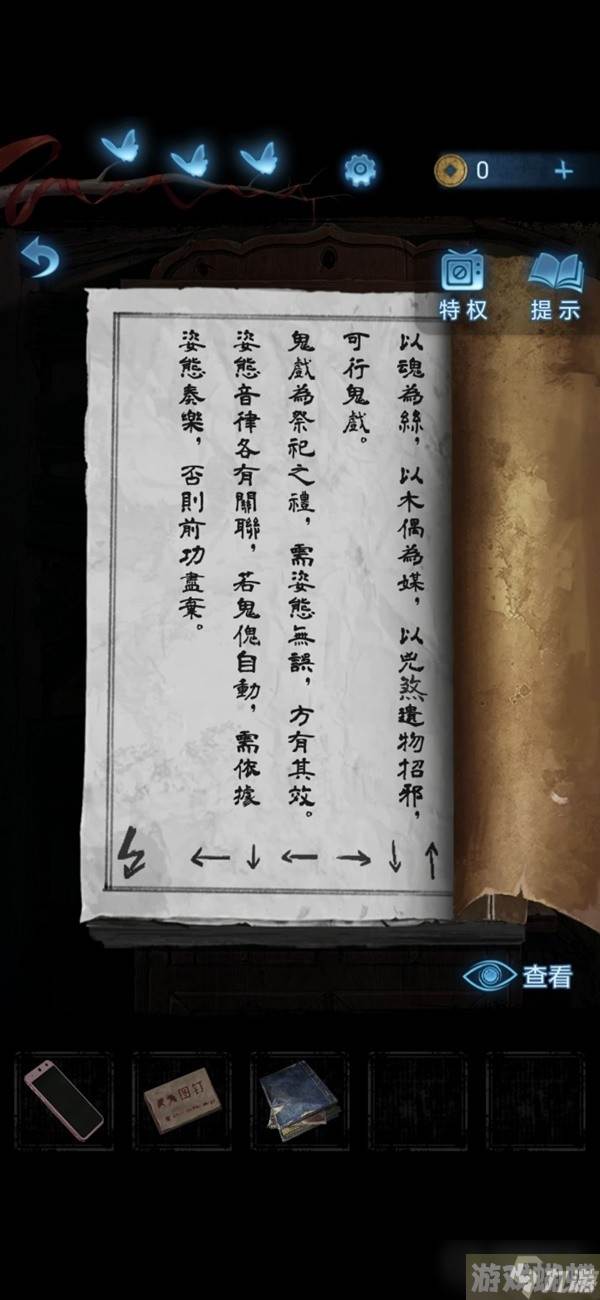 0
特权
提示
以魂為絲，以木偶為媒，以兇煞遺物招邪，
可行鬼戲。
鬼戲為祭祀之禮，需姿態無誤，方有其效。
姿態音律各有關聯，若鬼傀自動，需依據
姿態奏樂，否則前功盡棄。
↑ ↓ → ← ↓ ←
查看
图钉